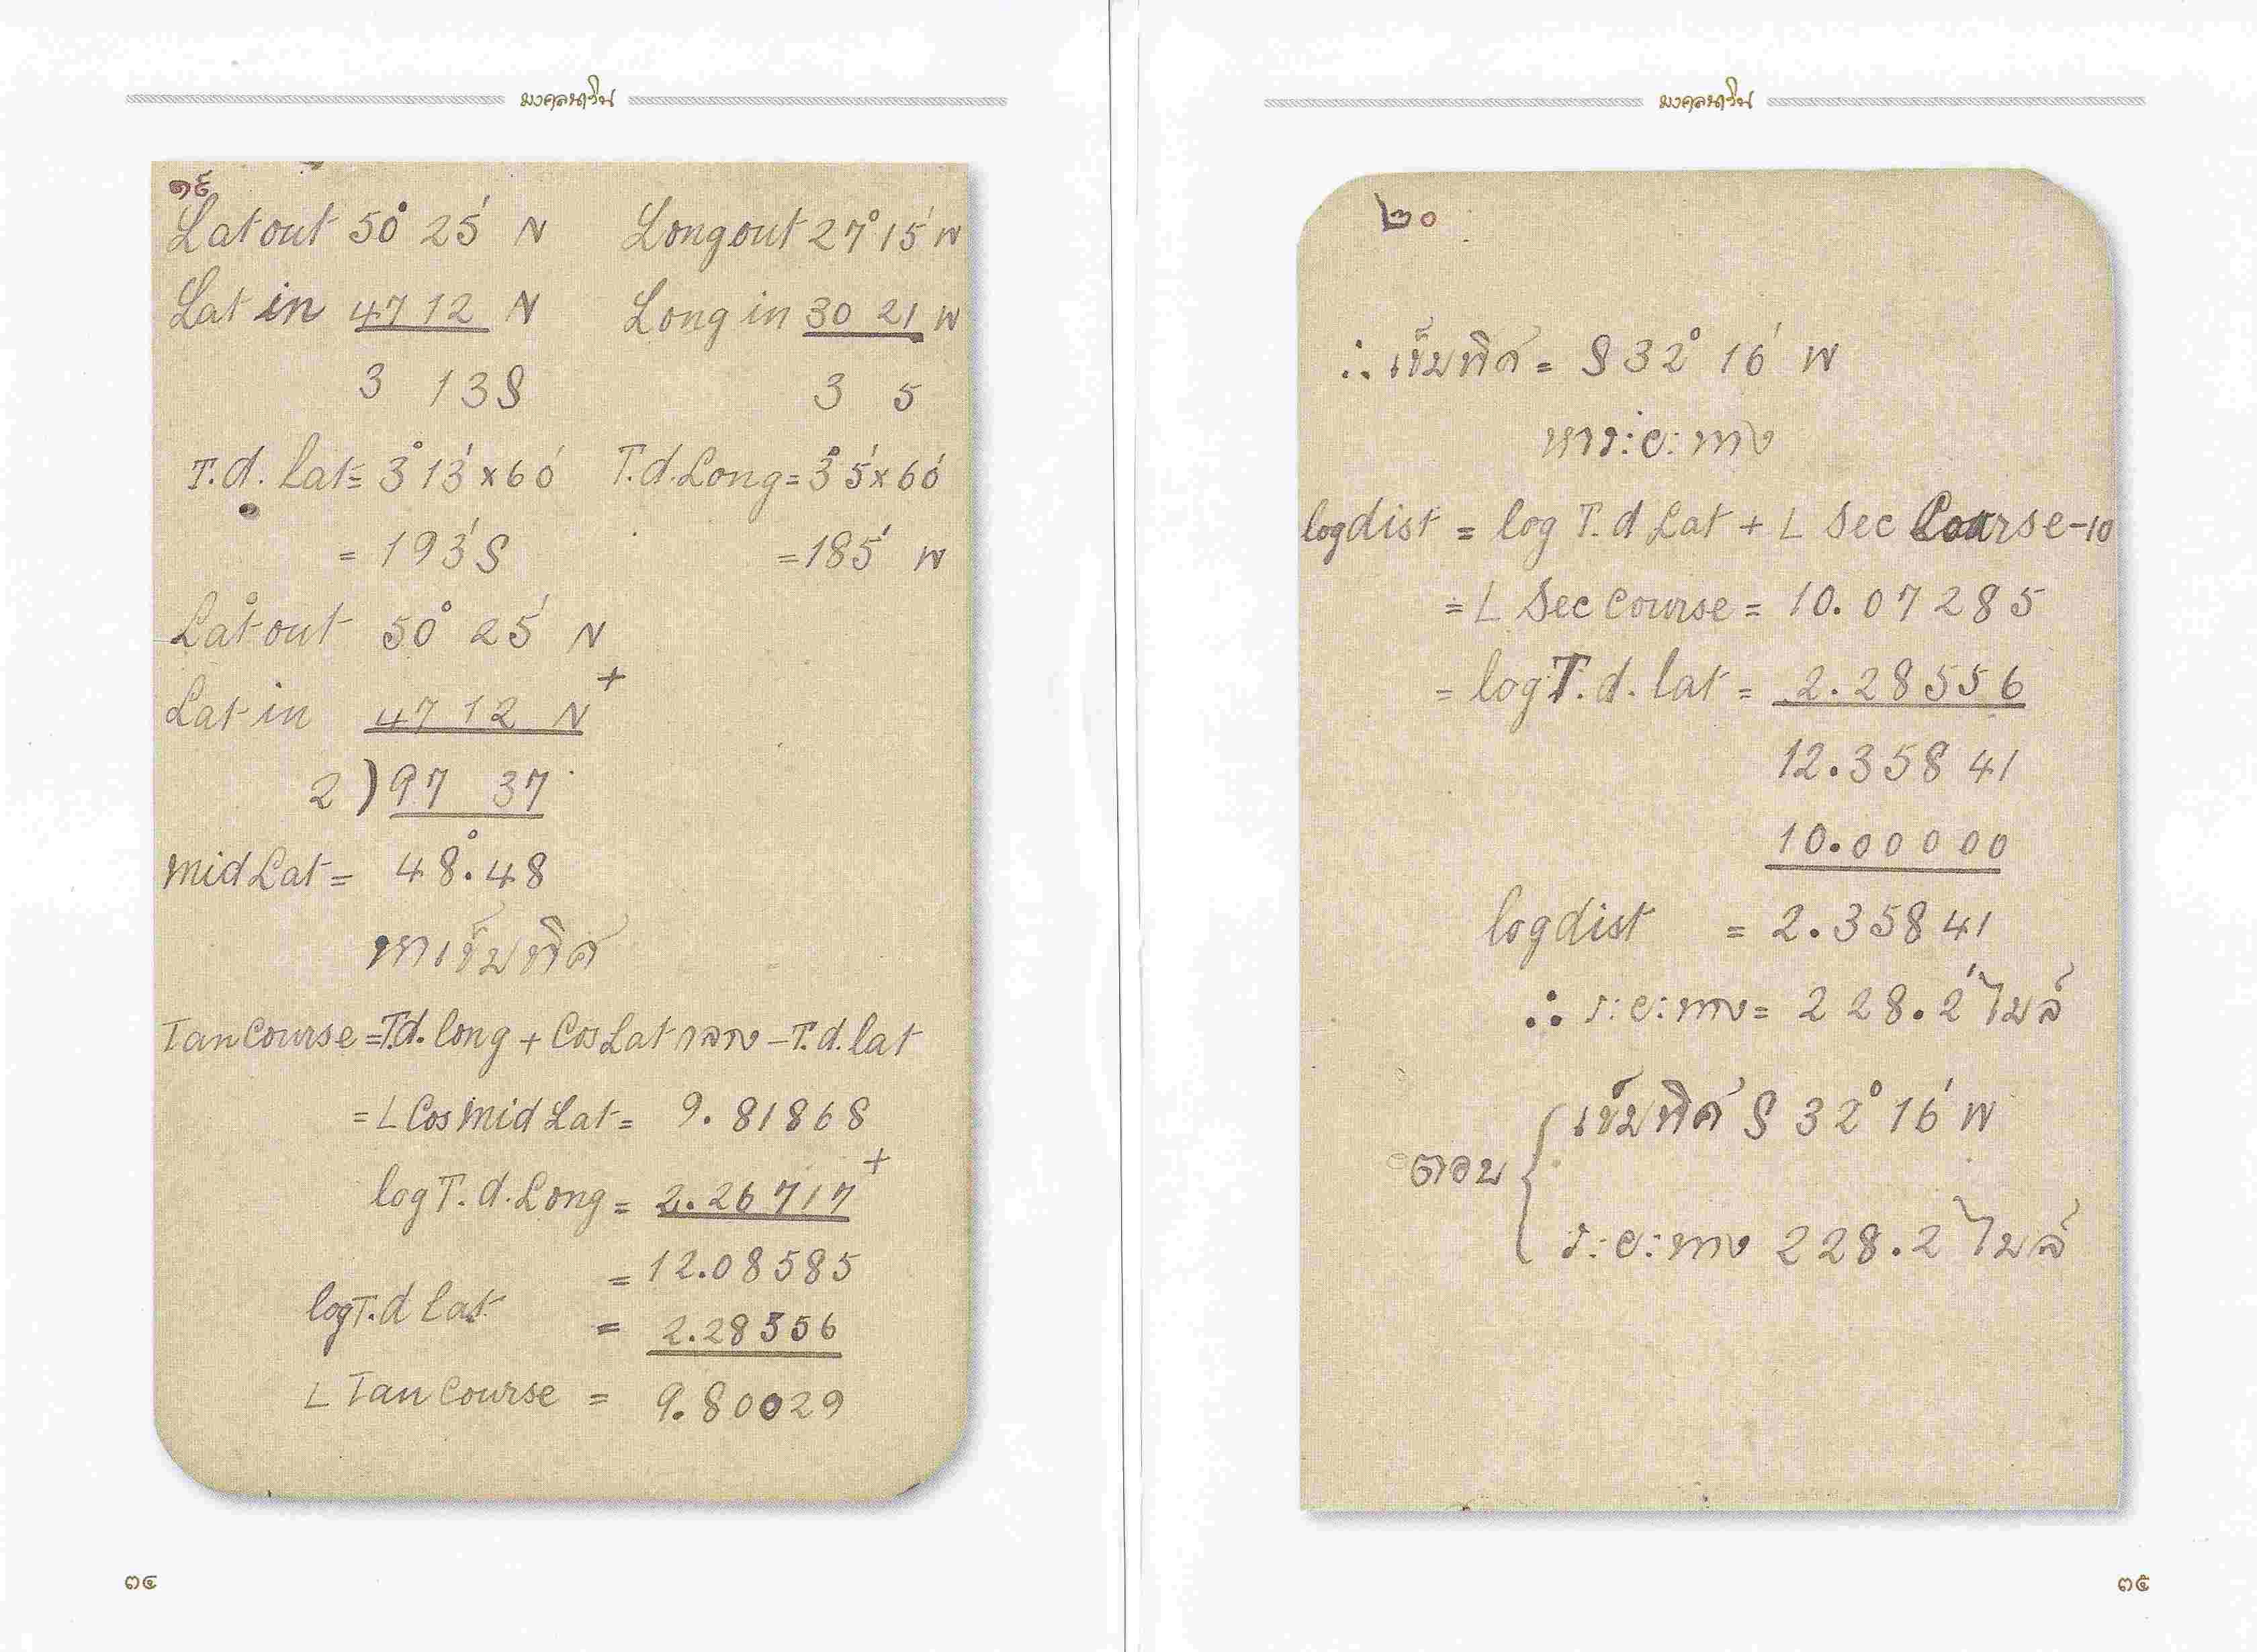 มงคลนาวิน
๑๙
Lat out 50° 25' N Long out 27° 15' W
Lat in 47 12 N Long in 30 21 W
3 13 S 3 5
T.d. Lat = 3° 13' × 60' T.d. Long = 3° 5' × 60'
= 193' S = 185' W
Lat out 50° 25' N
+
Lat in 47 12 N
2 ) 97 37
Mid Lat = 48°.48
หาเข็มทิศ
Tan Course = T.d. Long + Cos Lat กลาง - T.d. lat
= L Cos Mid Lat = 9.81868
+
log T.d. Long = 2.26717
= 12.08585
log T.d Lat = 2.28556
L Tan Course = 9.80029
๓๔
มงคลนาวิน
๒๐
∴ เข็มทิศ = S 32° 16' W
หาร:ย:ทาง
log dist = log T.d Lat + L Sec Course - 10
= L Sec Course = 10.07285
= log T.d. lat = 2.28556
12.35841
10.00000
log dist = 2.35841
∴ ร:ย:ทาง = 228.2' ไมล์
เข็มทิศ S 32° 16' W
ตอบ {
ร:ย:ทาง 228.2 ไมล์
๓๕